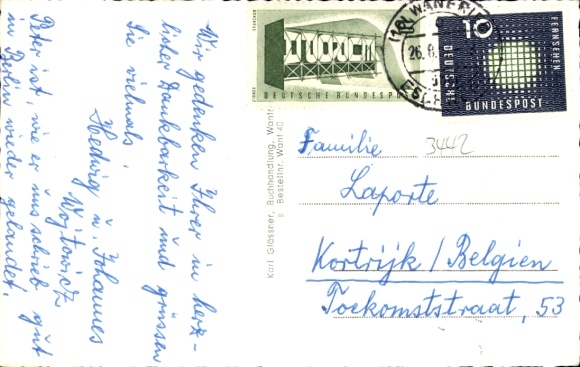 Wir gedenken Ihrer in herz-
licher Dankbarkeit und grüssen
Sie vielmals.
Hedwig u. Johannes
Wojtowicz
Peter ist, wie er uns schrieb gut
in Berlin wieder gelandet.
Karl Glässner, Buchhandlung, Wanfr
Bestellnr. Wanf 40
DEUTSCHE BUNDESPOST
WANFRI
26.8.
10
FERNSEHEN
DEUTSCHE
BUNDESPOST
3442
Familie
Laporte
Kortrijk / Belgien
Toekomststraat, 53